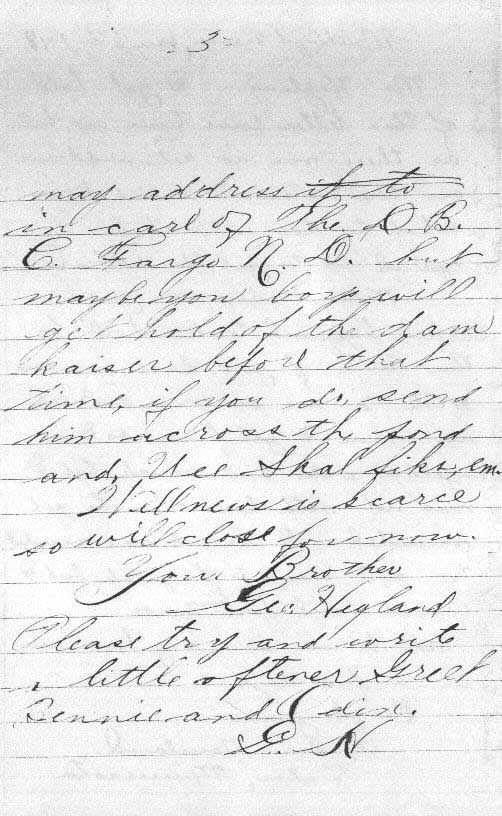 - 3 -
may address it to
in care of The D. B.
C. Fargo N. D. but
maybe you boys will
get hold of the dam
kaiser before that
time, if you do, send
him across th pond
and, Vee Shal fiks, em.
Well news is scarce
so will close for now.
Your Brother
Geo. Hegland
Please try and write
a little oftener Greet
Bennie and Edin.
G. H